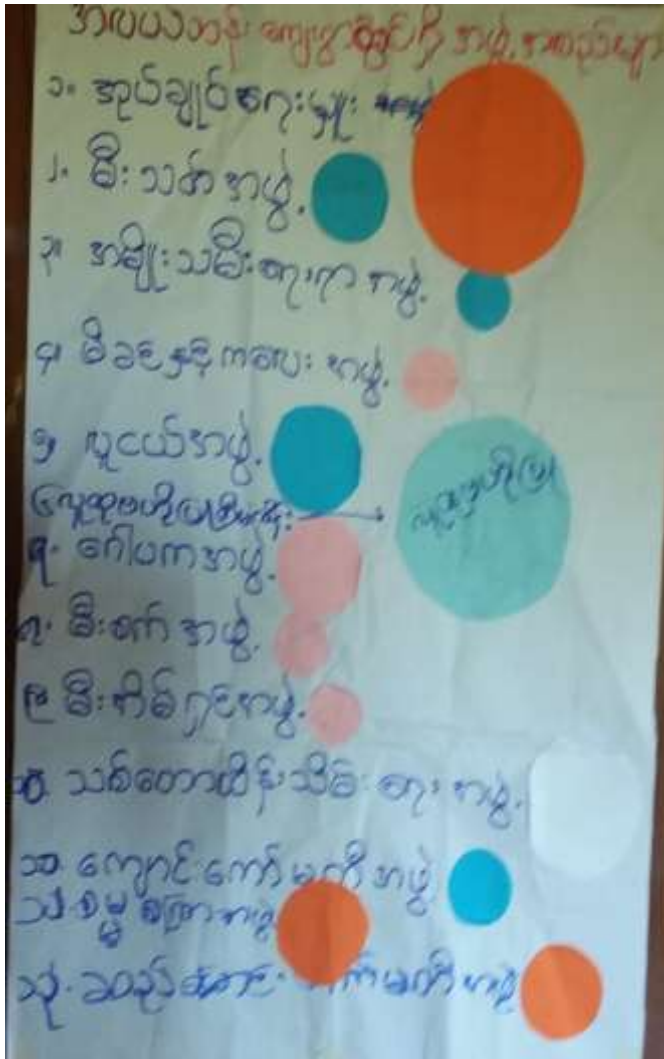 အလယ်တန်း ကျေးရွာတွင်ရှိ အဖွဲ့အစည်းများ
၁။ အုပ်ချုပ်ရေးမှူး
၂။ မီးသတ်အဖွဲ့
၃။ အမျိုးသမီးရေးရာအဖွဲ့
၄။ မိခင်နှင့်ကလေးအဖွဲ့
၅။ လူငယ်အဖွဲ့
၆။ လူထုဗဟိုပြုစီမံကိန်း
လူထုဗဟိုပြု
၇။ ဂေါပကအဖွဲ့
၈။ မီးစက်အဖွဲ့
၉။ မီးအိမ်ရှင်အဖွဲ့
၁၀။ သစ်တောထိန်းသိမ်းရေးအဖွဲ့
၁၁။ ကျောင်းကော်မတီအဖွဲ့
၁၂။ ဓမ္မစကြာအဖွဲ့
၁၃။ ကော်မတီအဖွဲ့